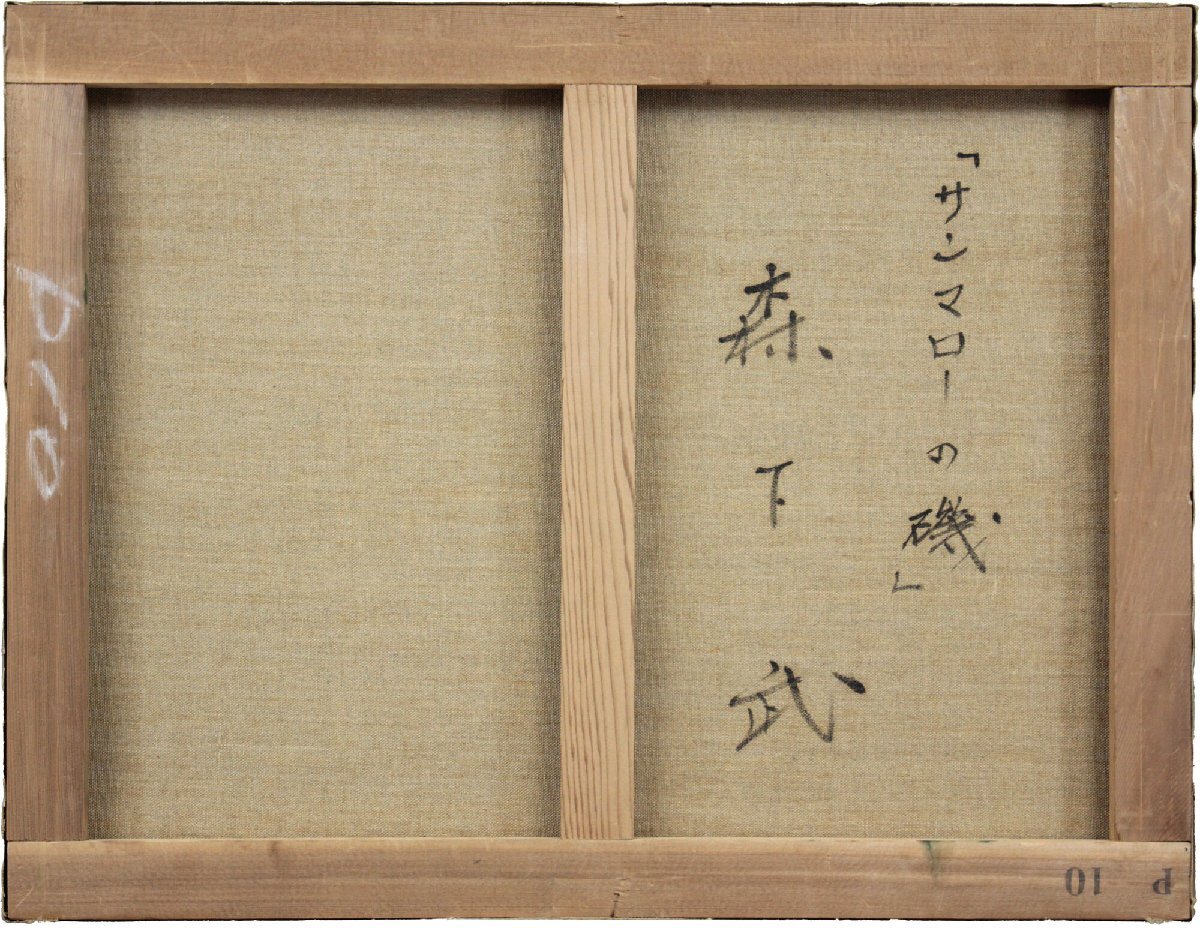 「サンマローの磯」
森下武
P10
P 10